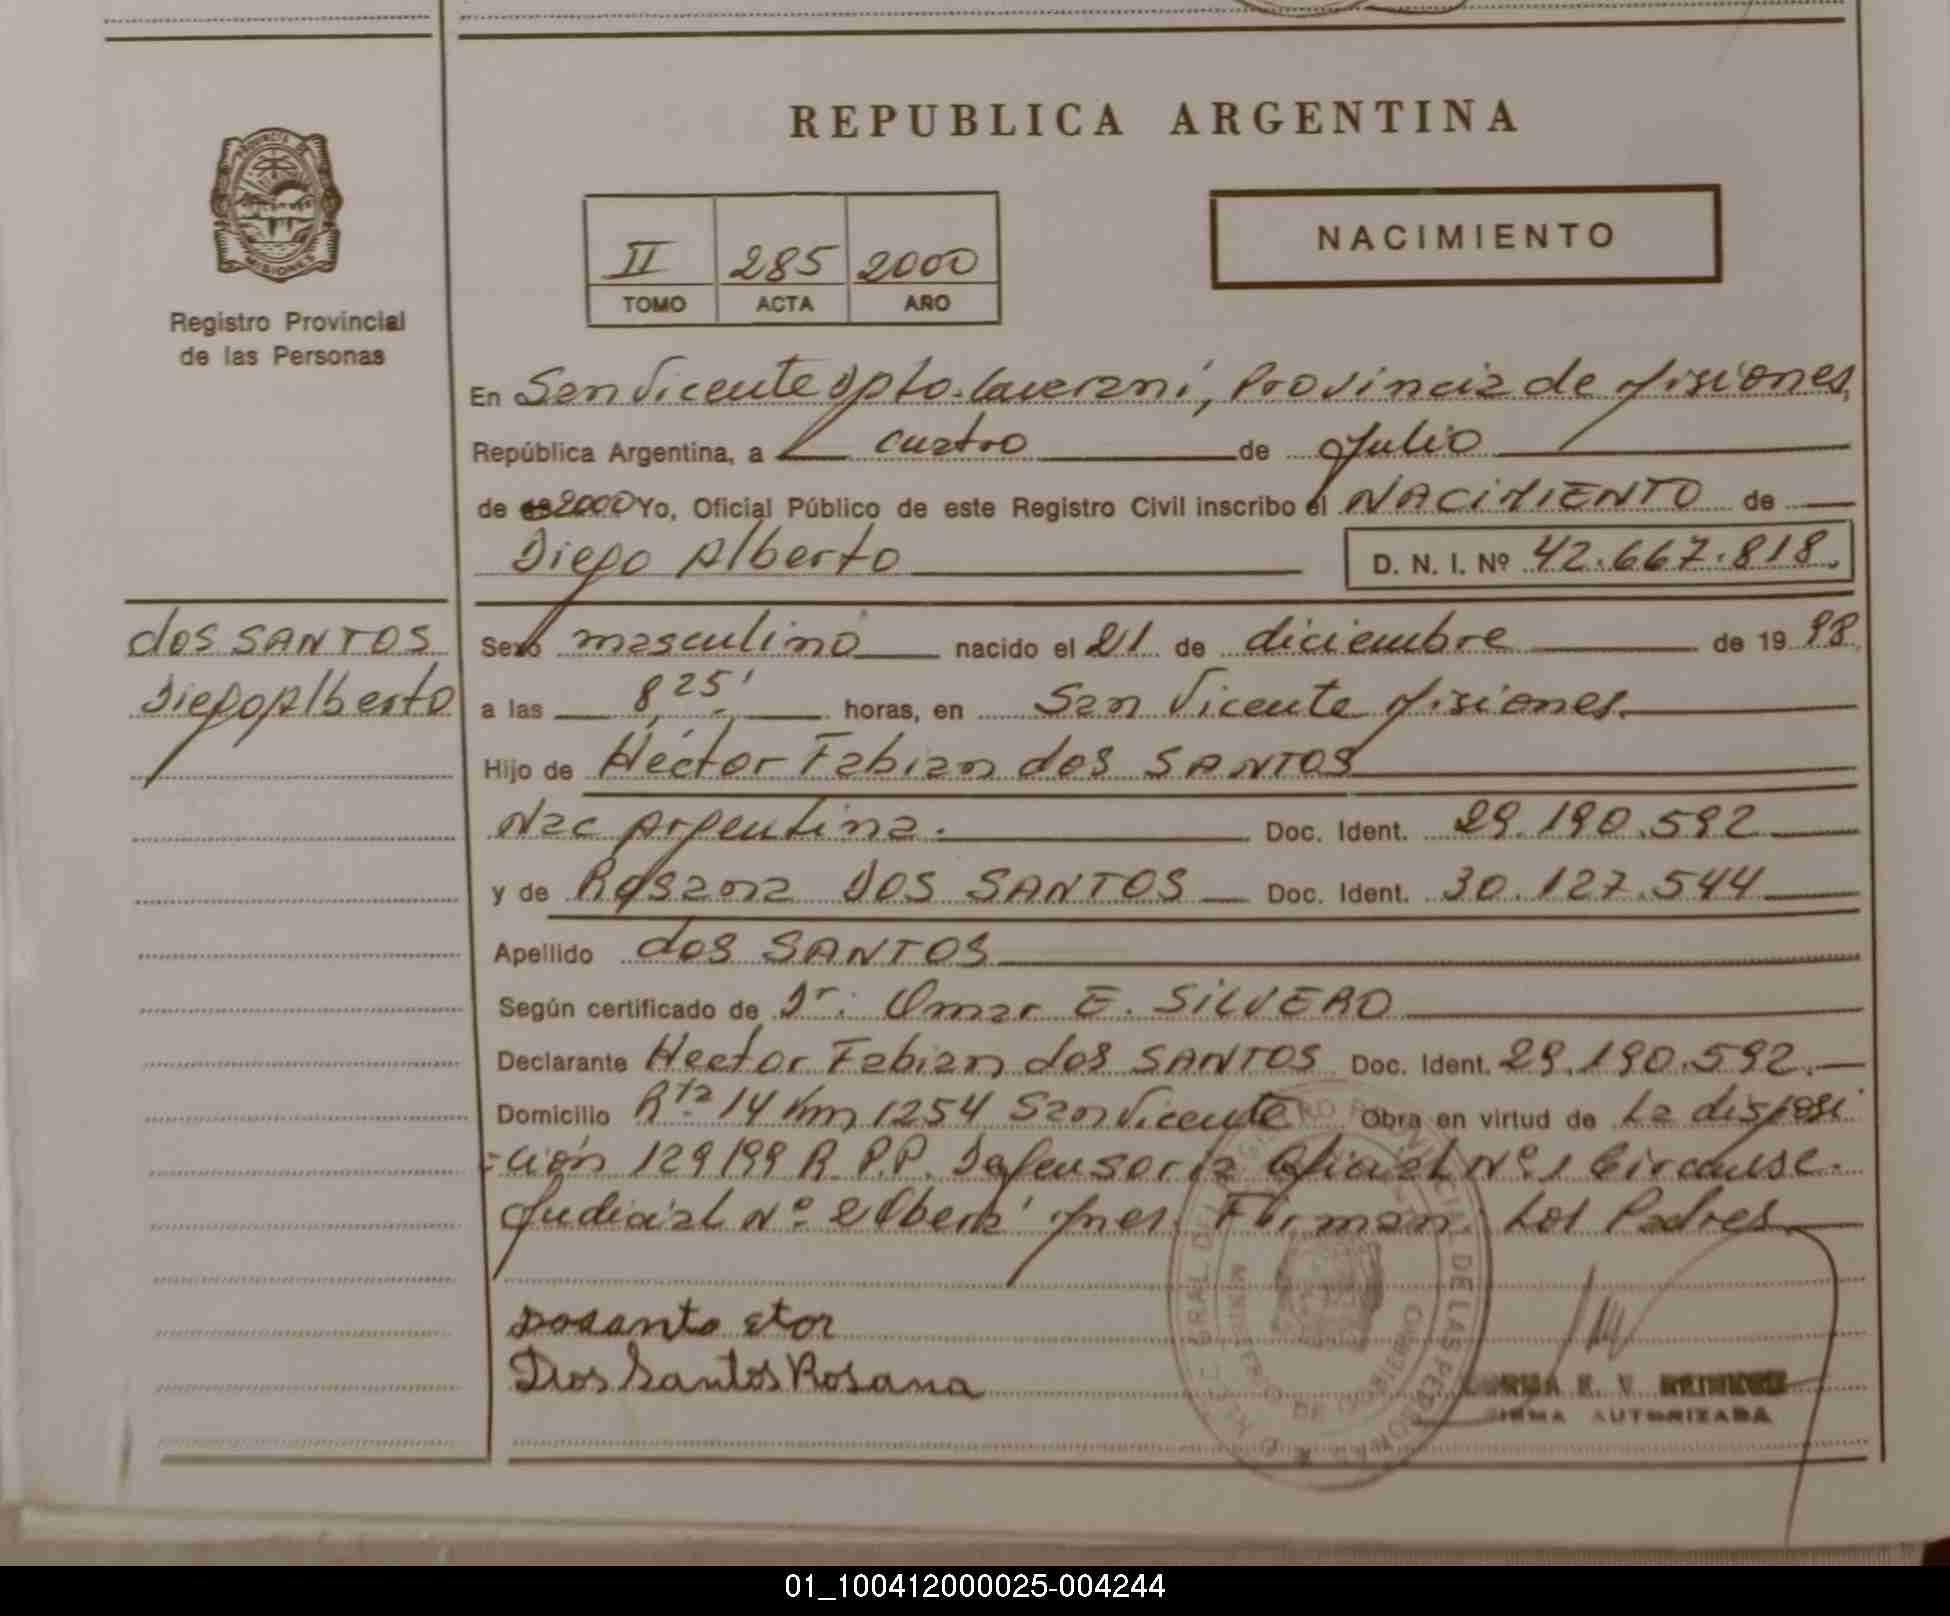 REPUBLICA ARGENTINA
PROVINCIA DE
MISIONES
Registro Provincial
de las Personas
II 285 2000
TOMO ACTA AÑO
NACIMIENTO
En San Vicente Dpto. Guaraní, Provincia de Misiones,
República Argentina, a cuatro de Julio
de 2000 Yo, Oficial Público de este Registro Civil inscribo el NACIMIENTO de
Diego Alberto D. N. I. Nº 42.667.818.
dos SANTOS
Diego Alberto
Sexo masculino nacido el 21 de diciembre de 19 98
a las 8,25' horas, en San Vicente Misiones.
Hijo de Héctor Fabian dos SANTOS
Nac Argentina. Doc. Ident. 29.190.592
y de Rosana DOS SANTOS Doc. Ident. 30.127.544
Apellido dos SANTOS
Según certificado de Dr. Omar E. SILVERO
Declarante Hector Fabian dos SANTOS Doc. Ident. 29.190.592.
Domicilio Rta 14 Km 1254 San Vicente Obra en virtud de La disposi
ción 129/99 R.P.P. Defensoria Oficial Nº 1 Circunsc.
Judicial Nº 2 Oberá Mnes. Firman: Los Padres
Dosanto etor
Dos Santos Rosana
FIRMA AUTORIZADA
01_100412000025-004244